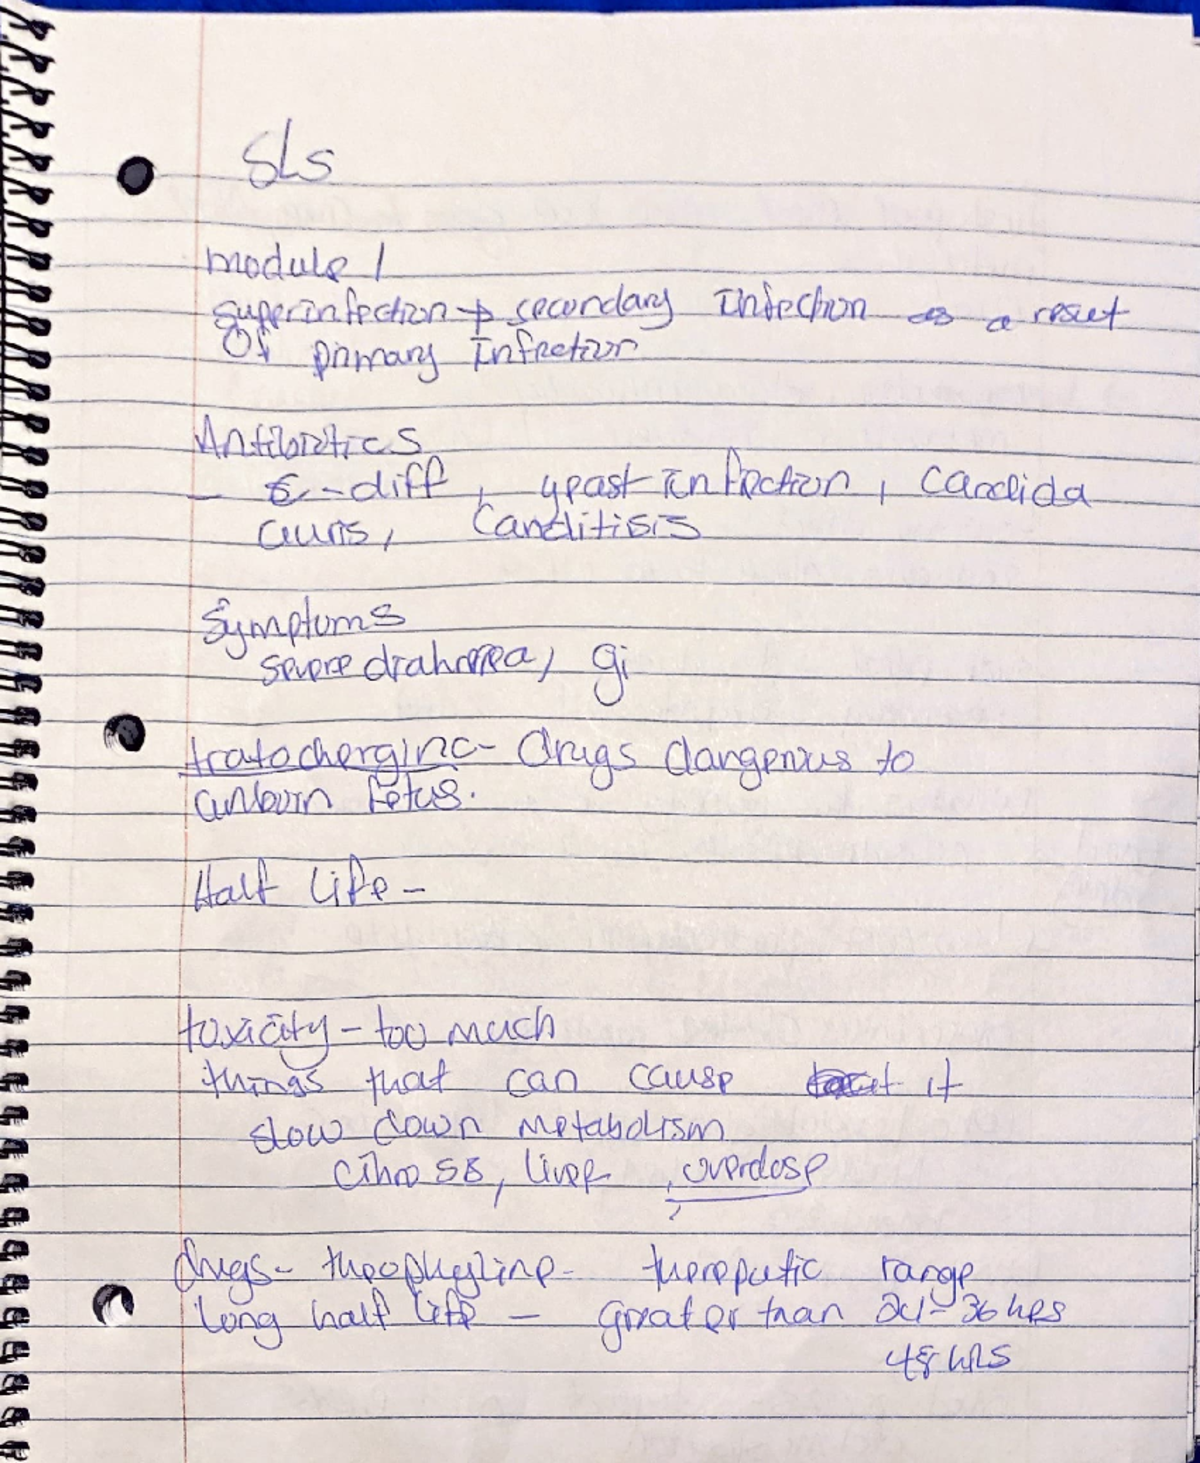 SLs
module 1
superinfection → secondary Infection as a result
Of primary Infection
Antibiotics
- C-diff, yeast infection, candida
auris, Canditisis
Symptoms
severe diahrrea, gi
tratocherginc- drugs dangerous to
unborn fetus.
Half life -
toxicity - too much
things that can cause it
slow down metabolism
liver, overdose
drugs - theophyline - therepeutic range
long half life - greater than 24-36 hrs
48 hrs